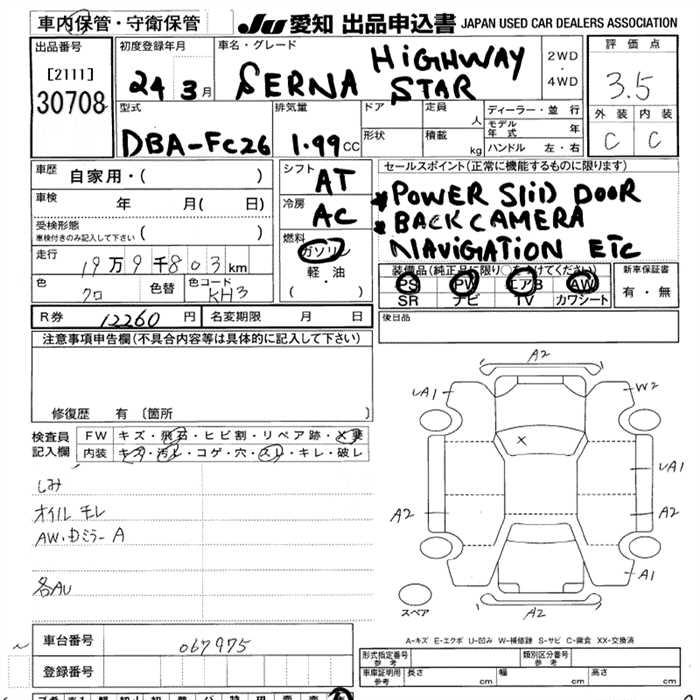 車内保管・守衛保管
JU 愛知 出品申込書 JAPAN USED CAR DEALERS ASSOCIATION
出品番号
[2111]
30708
初度登録年月
24 3月
車名・グレード
SERNA HIGHWAY STAR
2WD
・
4WD
評価点
3.5
外装 内装
C C
型式
DBA-FC26
排気量
1.99 CC
ドア
形状
定員
人
積載
kg
ディーラー・並 行
モデル年式 年
ハンドル 左・右
車歴
自家用・( )
車検
年 月( 日)
受検形態
車検付きのみ記入して下さい ( )
走行
19万9千803km
色
クロ
色替
色コード
KH3
シフト
AT
冷房
AC
燃料
ガソリン
軽・油
( )
セールスポイント(正常に機能するものに限ります)
* POWER SliD DOOR
* BACK CAMERA
NAViGATiON ETC
装備品(純正品に限り○をつけてください)
PS PW エアB AW
SR ナビ TV カワシート
新車保証書
有・無
R券 12260 円
名変期限 月 日
後日品
注意事項申告欄(不具合内容等は具体的に記入して下さい)
修復歴 有〔箇所 〕
検査員記入欄
FW キズ・飛石・ヒビ割・リペア跡・X要
内装 キズ・汚レ・コゲ・穴・スレ・キレ・破レ
しみ
オイルモレ
AW・Dミラー A
各AU
A2
UA1
W2
X
UA1
A2
A2
A1
A2
スペア
A-キズ E-エクボ U-凹み W-補修跡 S-サビ C-腐食 XX-交換済
車台番号 067975
登録番号
形式指定番号
参考
類別区分番号
参考
車庫証明用
参考
長さ 幅 高さ
cm